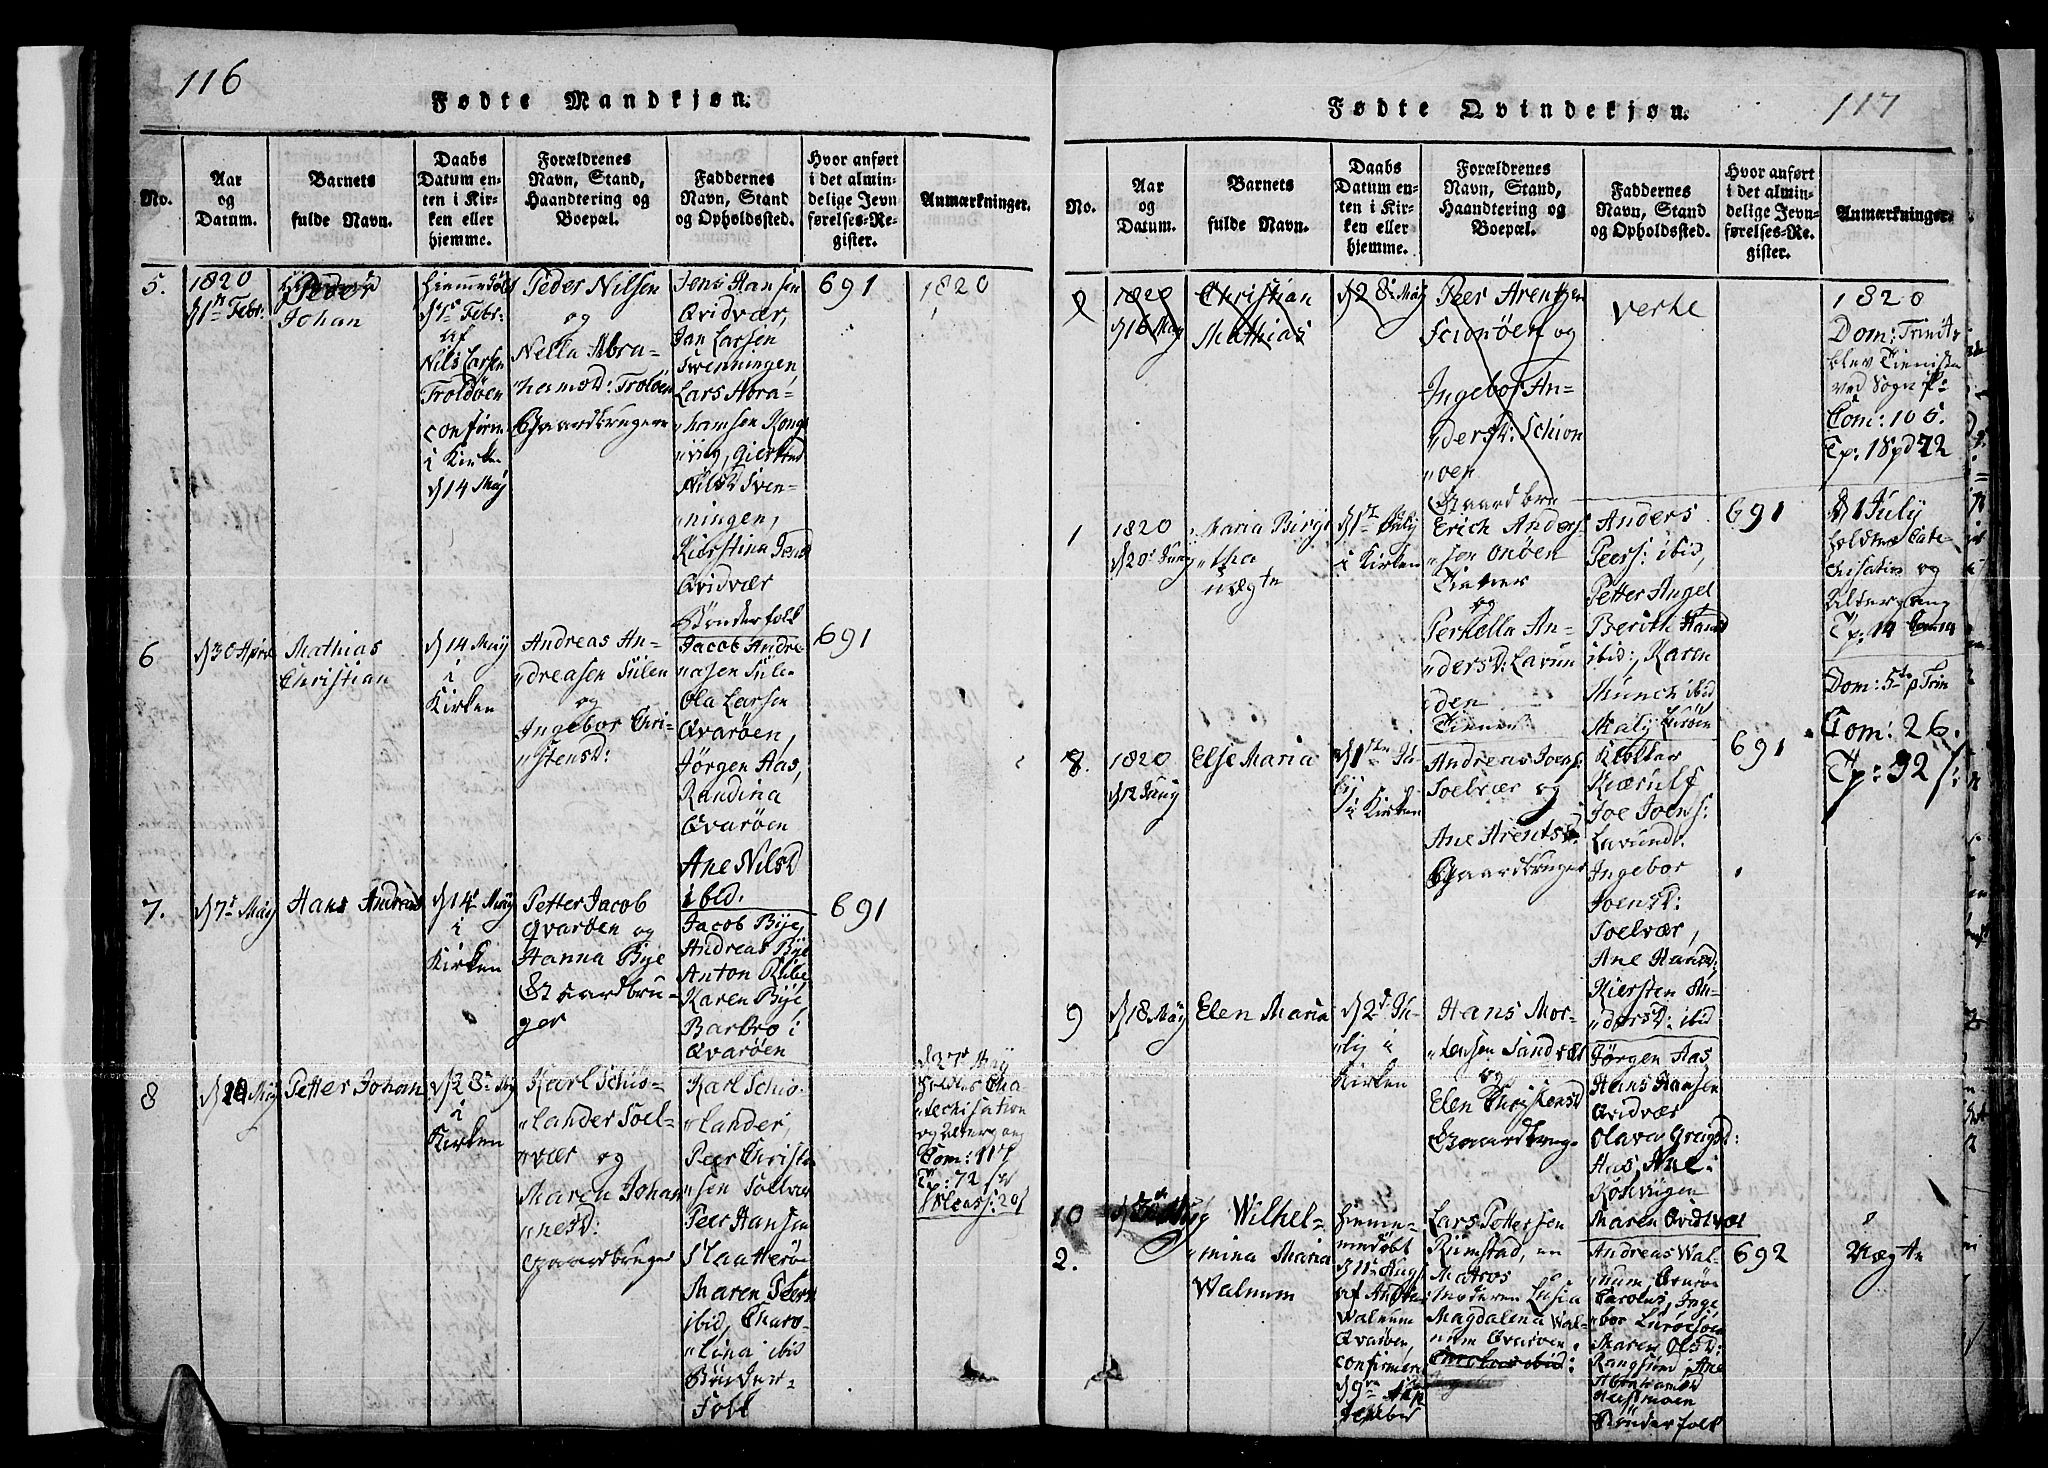 116
Fødte Mandkjøn.
No.
Aar
og
Datum.
Barnets
fulde Navn.
Daabs
Datum en-
ten i Kir-
ken eller
hjemme.
Forældrenes
Navn, Stand,
Haandtering og
Boepæl.
Faddernes
Navn, Stand
og Opholdssted.
Hvor anført
i det almin-
delige Jevn
førelses-Re-
gister.
Anmærkninger.
5.
1820
d 1ste Febr:
Peder
Johan
Hiemmedøbt
d 7de Febr:
af
Nils Larsen
Troldøen
confirm
i Kirken
d 14 May
Peder Nilsen
og
Nella Abra-
"hamsd: Troløen
Gaardbrugere
Jens Hansen
Qvidvær,
Jan Larsen
Svenningen
Lars Abra-
"hamsen Kongs
"viig,
Nilsd Sven-
"ningen,
Kierstina Jensd
Qvidvær
Bønderfolk
691
1820
6
d 30 April
Mathias
Christian
d 14 May
i
Kirken
Andreas An-
"dreasen Sulen
og
Ingebor Chri-
"stensd:
Jacob Andre-
"asen Sule-
Ola Larsen
Qvarøen,
Jørgen Aas,
Randina
Qvarøen
Ane Nilsd
ibid.
691
7.
d 7de May
Hans Andreas
d 14de May
i
Kirken
Petter Jacob
Qvarøen og
Hanna Bye
Gaardbru-
ger
Jacob Bye,
Andreas Bye
Anton
Karen Bye,
Barbro i
Qvarøen
691
8
Petter Johan
d 28de May
i
Kirken
Karl Schiø-
"lander Soel-
"vær og
Maren Johan
"nesd:
Gaardbruger
Karl Schiø-
lander,
Peer Christen
"sen Soelvær
Peer Hansen
Slaatterøe
Maren Peersd
ibid, Charo-
"lina ibid
Bønder-
Folk
d 27de May
holdtes Cha-
"techisation
og Altergang
Com: 117
Tp: 72
117
Fødte Qvindekjøn.
No.
Aar
og
Datum.
Barnets
fulde Navn.
Daabs
Datum en-
ten i Kir-
ken eller
hjemme.
Forældrenes
Navn, Stand,
Haandtering og
Boepæl.
Faddernes
Navn, Stand
og Opholdssted.
Hvor anført
i det almin-
delige Jevn-
førelses-Re-
gister.
Anmærkninger.
1820
d 16 May
Christian
Mathias
d 28 May
Peer Arentsen
Scionøen og
Ingebor An-
"dersd: Schion
"øen
Gaardbru
verte
1820
Dom: Trinit:
blev Tieniste
ved Sogne P:
Com: 106.
Tp: 18
1
1820
Maria Birgi
"tha
uægte
d 1ste July
i Kirken
Erich Anders
"sen Onøen
Tiener
og
Pernella An-
"dersd: Lavun
"den
Tiener
Anders
Peers: ibid,
Petter Angel
Berith Hansd
ibid:, Karen
Münch ibid
Maly Lurøen
691
d 1 July
holdtes Cate-
chisation og
Altergang
Tp: 14
Dom: 5te p Trin
Com: 26.
Tp: 32
8.
1820
Else Maria
d 1ste Ju-
ly
i Kirken
Andreas Joens:
Soelvær og
Ane Arentsd.
Gaardbruger
Klokker
Kiærulf
Joe Joens:
Lavund.
Ingebor
Joensd:
Soelvær,
Ane Hansd:
Kiersten An-
"dersd: ibid
691
9
d 18 May
Elen Maria
d 2de Ju-
"ly i
Kirken
Hans Mor-
"tensen Sandvær
og
Elen Christensd
Gaardbruge
Jørgen Aas
Hans Hansen
Qvidvær
Olava Gregsd:
Aas, Ane
Kosevigen
Maren Qvidvær
10
2.
Wilhel-
"mina Maria
Walnum
Hiemme-
døbt
af Andreas
Walnum
Qvarøen,
confirmere
Lars Pettersen
Rumstad, en
Matros
moderen Lusia
Magdalena Wal-
num Qvarøen.
Andreas Wal-
"num,
Carolus, Inge
"bor
Maren Olsd:
Rangsund, Ane
Abrahamsd
Bønderfolk
692
Uægte